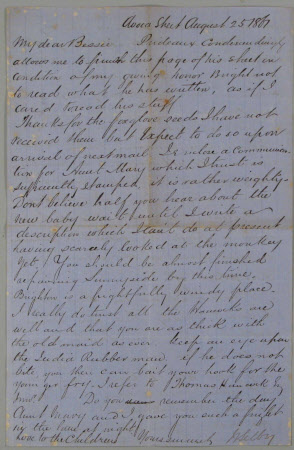 Street August 25 1861
My dear Bessie Prideaux Condescendingly
allows me to finish this page of his sheet on
condition of my giving honor Bright not
to read what he has written, as if I
cared to read his stuff
Thanks for the foxglove seeds I have not
received them but expect to do so upon
arrival of next mail. I enclose a communica
tion for Aunt Mary which I trust is
sufficiently stamped it is rather weighty
Dont believe half you hear about the
new baby wait until I write a
description which I cant do at present
having scarcely looked at the monkey
yet. You should be almost finished
repairing Sunnyside by this time
Brighton is a frightfully windy place
I really do trust all the are
well and that you are as thick with
the old maid as ever. Keep an eye upon
the India Rubber man, if he does not
bite you then can bait your hook for the
younger frog. I refer to Thomas
Junr. Do you remember the day
Aunt and I gave you such a fright
the lane at night
love to the Children Yours sincerely